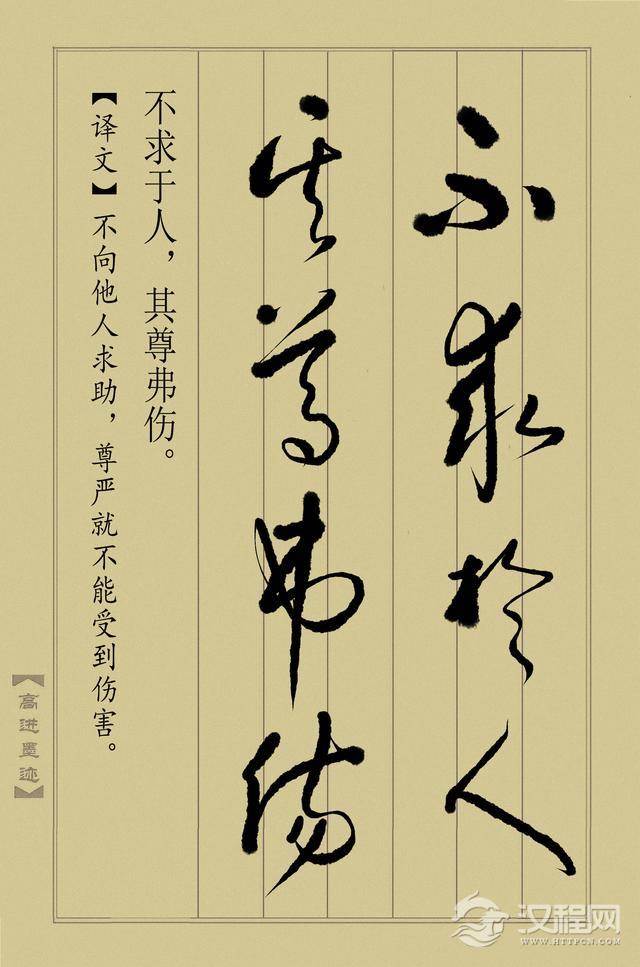 不求於人
其尊弗傷
不求于人，其尊弗伤。
【译文】不向他人求助，尊严就不能受到伤害。
【高进墨迹】
汉程网
WWW.HTTPCN.COM